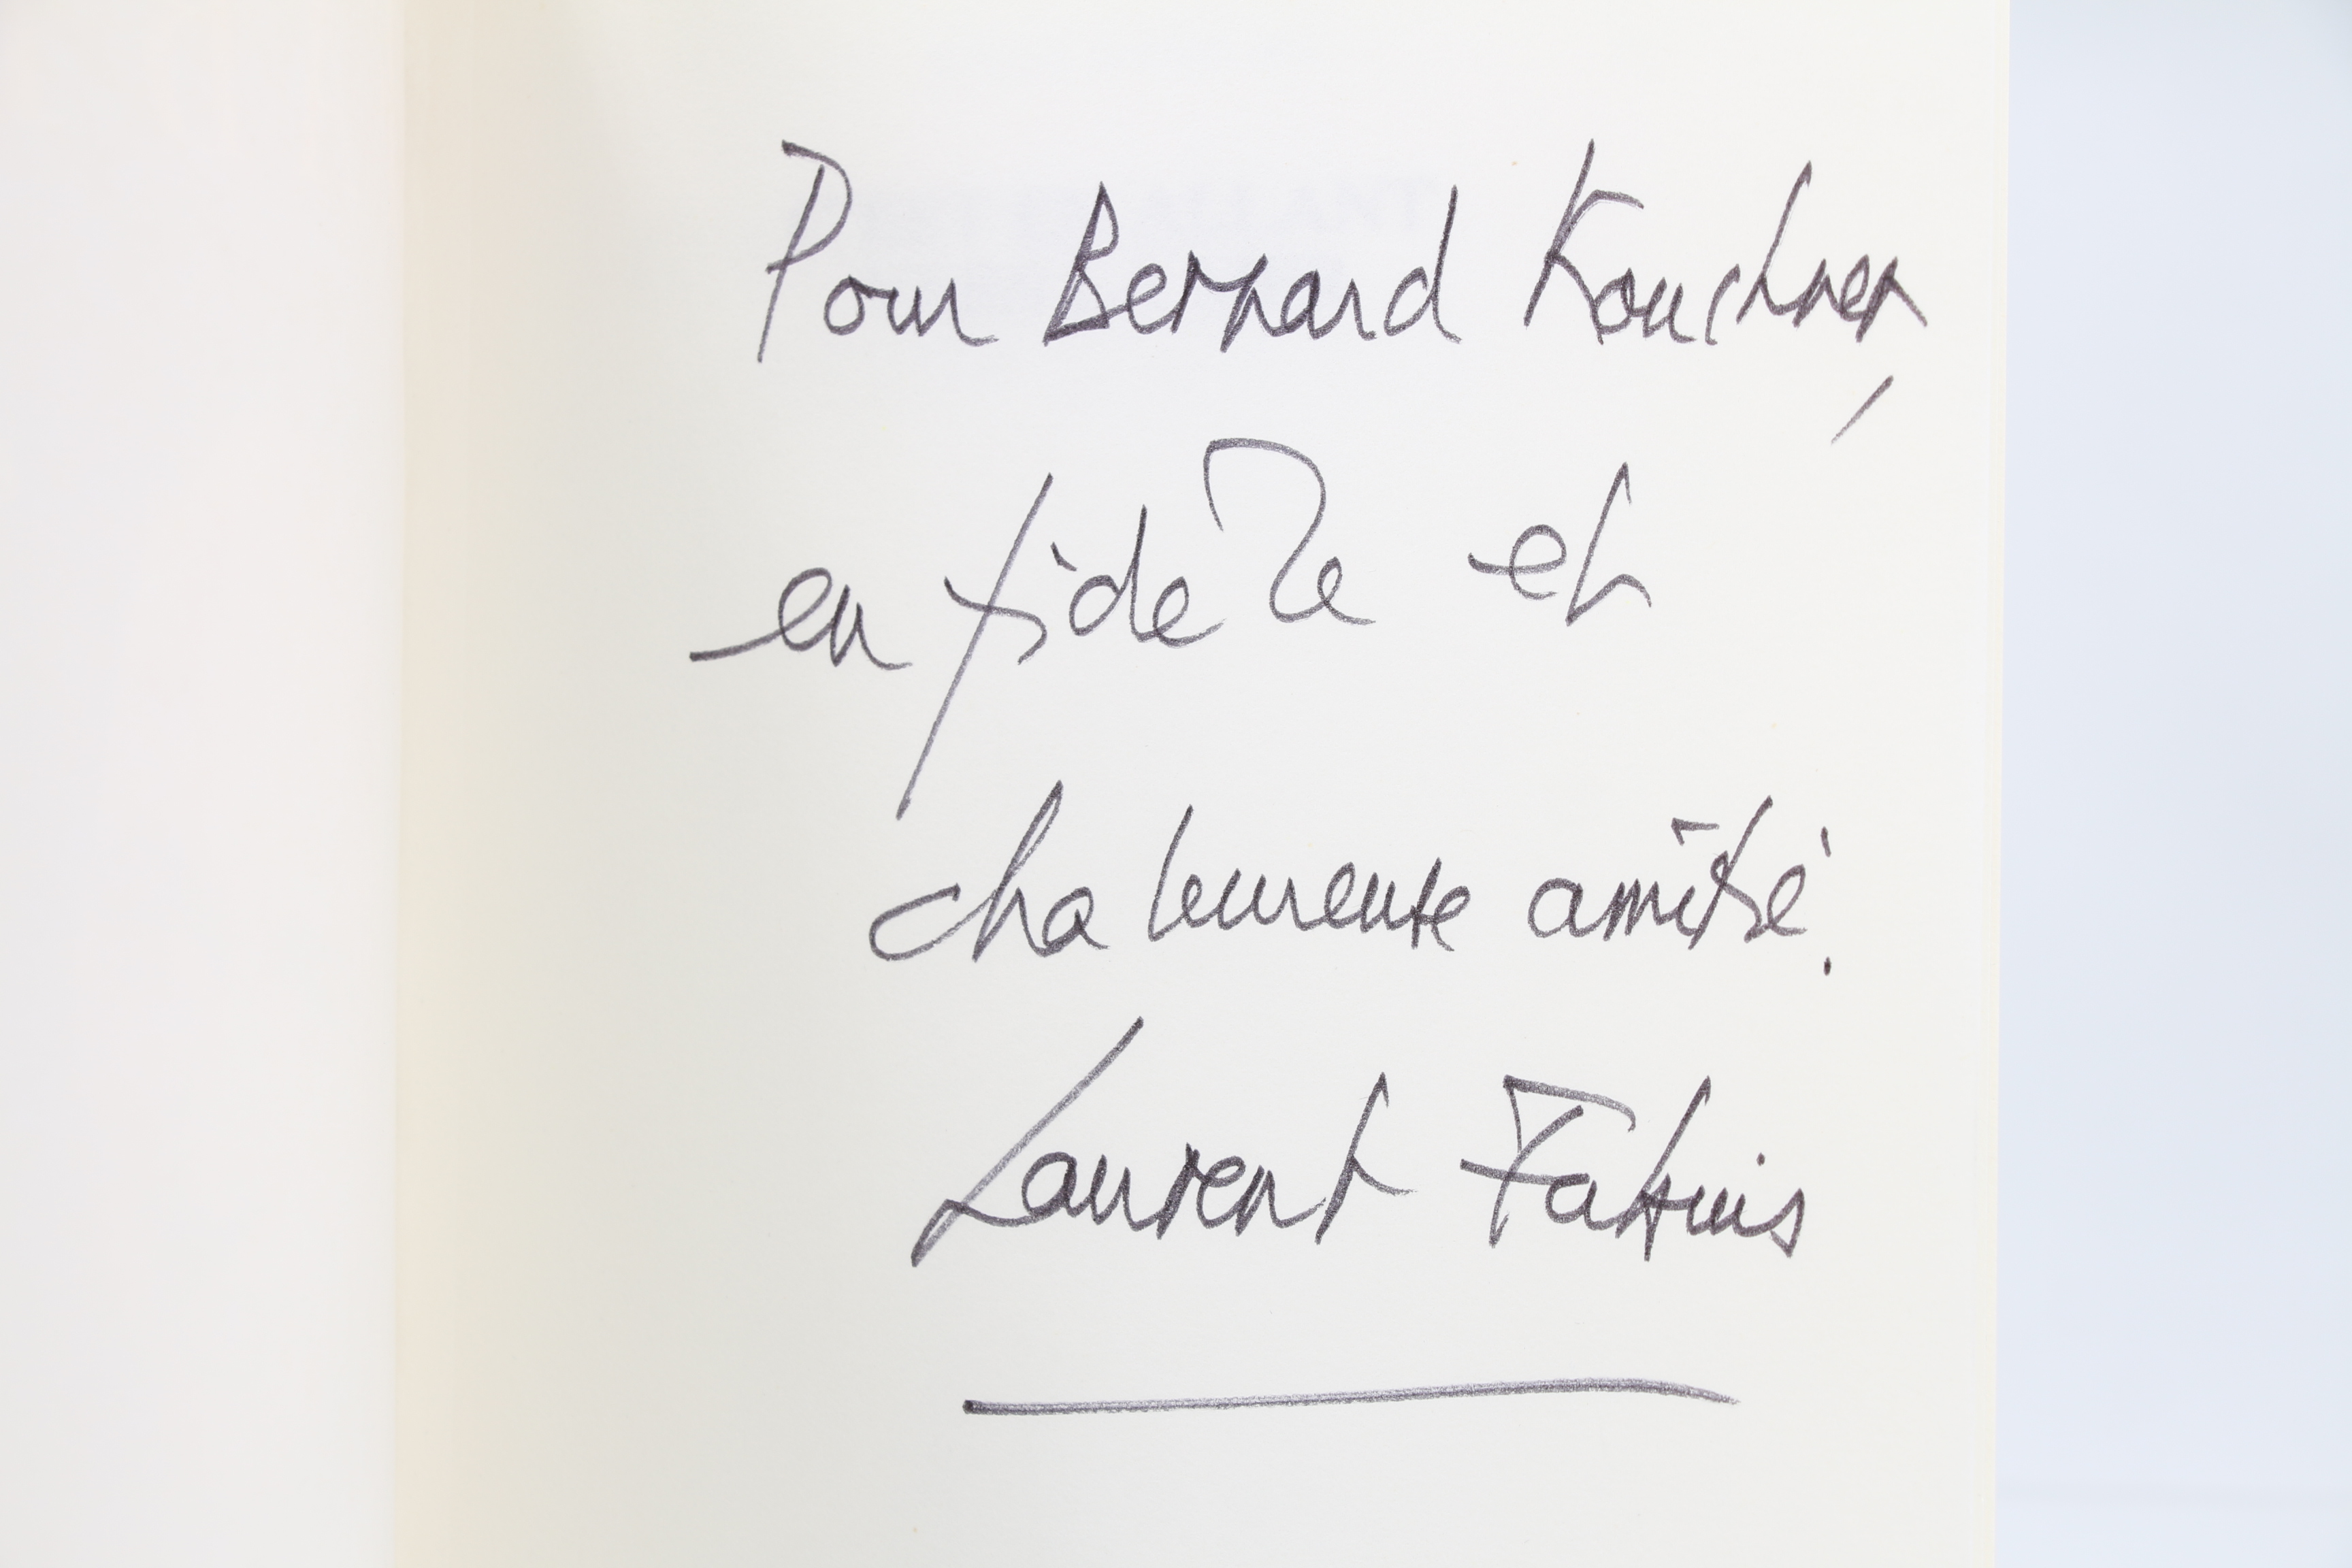 Pour Bernard Kouchner,
en fidèle et
chaleureuse amitié.
Laurent Fabius